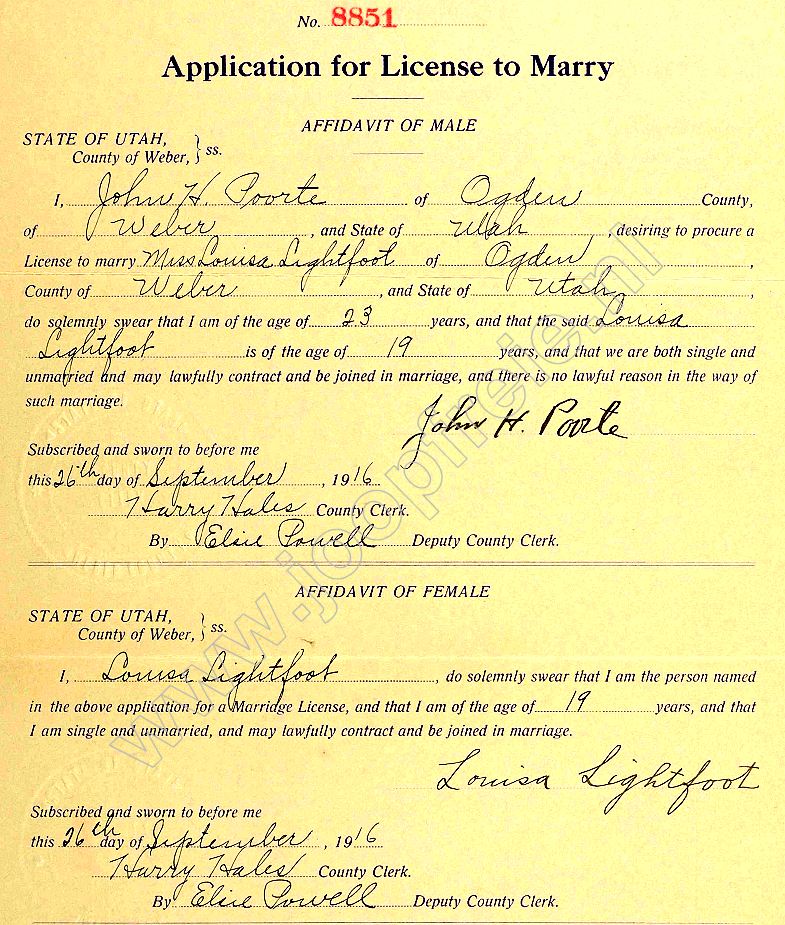 No. 8851
Application for License to Marry
AFFIDAVIT OF MALE
STATE OF UTAH,
County of Weber, } ss.
I, John H. Poorte of Ogden County,
of Weber, and State of Utah, desiring to procure a
License to marry Miss Louisa Lightfoot of Ogden,
County of Weber, and State of Utah,
do solemnly swear that I am of the age of 23 years, and that the said Louisa
Lightfoot is of the age of 19 years, and that we are both single and
unmarried and may lawfully contract and be joined in marriage, and there is no lawful reason in the way of
such marriage.
John H. Poorte
Subscribed and sworn to before me
this 26th day of September, 1916
Harry Hales County Clerk.
By Elsie Powell Deputy County Clerk.
AFFIDAVIT OF FEMALE
STATE OF UTAH,
County of Weber, } ss.
I, Louisa Lightfoot, do solemnly swear that I am the person named
in the above application for a Marridge License, and that I am of the age of 19 years, and that
I am single and unmarried, and may lawfully contract and be joined in marriage.
Louisa Lightfoot
Subscribed and sworn to before me
this 26th day of September, 1916
Harry Hales County Clerk.
By Elsie Powell Deputy County Clerk.